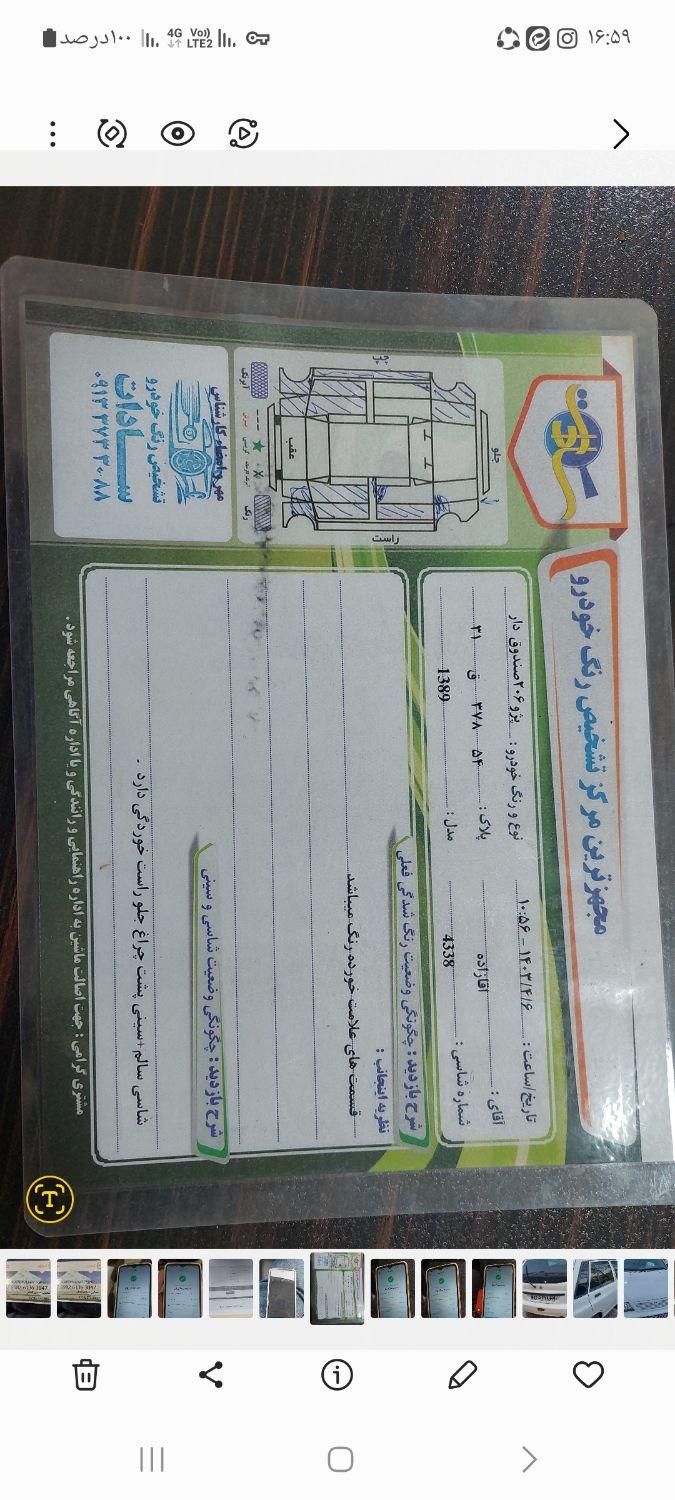 ۱۰۰درصد
4G
Vo))
LTE2
۱۶:۵۹
مجهزترین مرکز تشخیص رنگ خودرو
تاریخ/ساعت : ۱۴۰۳/۴/۶ - ۱۰:۵۶
نوع و رنگ خودرو : پژو۲۰۶صندوق دار
آقای : اقازاده
پلاک : ۵۴ ۳۷۸ ق ۳۱
شماره شاسی : 4338
مدل : 1389
جلو
راست
چپ
عقب
رنگ
آبرنگ
شرح بازدید : چگونگی وضعیت رنگ شدگی فعلی
نظریه اینجانب :
قسمت های علامت خورده رنگ میباشد
شرح بازدید : چگونگی وضعیت شاسی و سینی
شاسی سالم+سینی پشت چراغ جلو راست خوردگی دارد .
مهر و امضاء کارشناس
تشخیص رنگ خودرو
سادات
۰۹۱۳ ۳۷۳ ۳۰۸۸
مشتری گرامی : جهت اصالت ماشین به اداره راهنمایی و رانندگی و یا اداره آگاهی مراجعه شود .
T